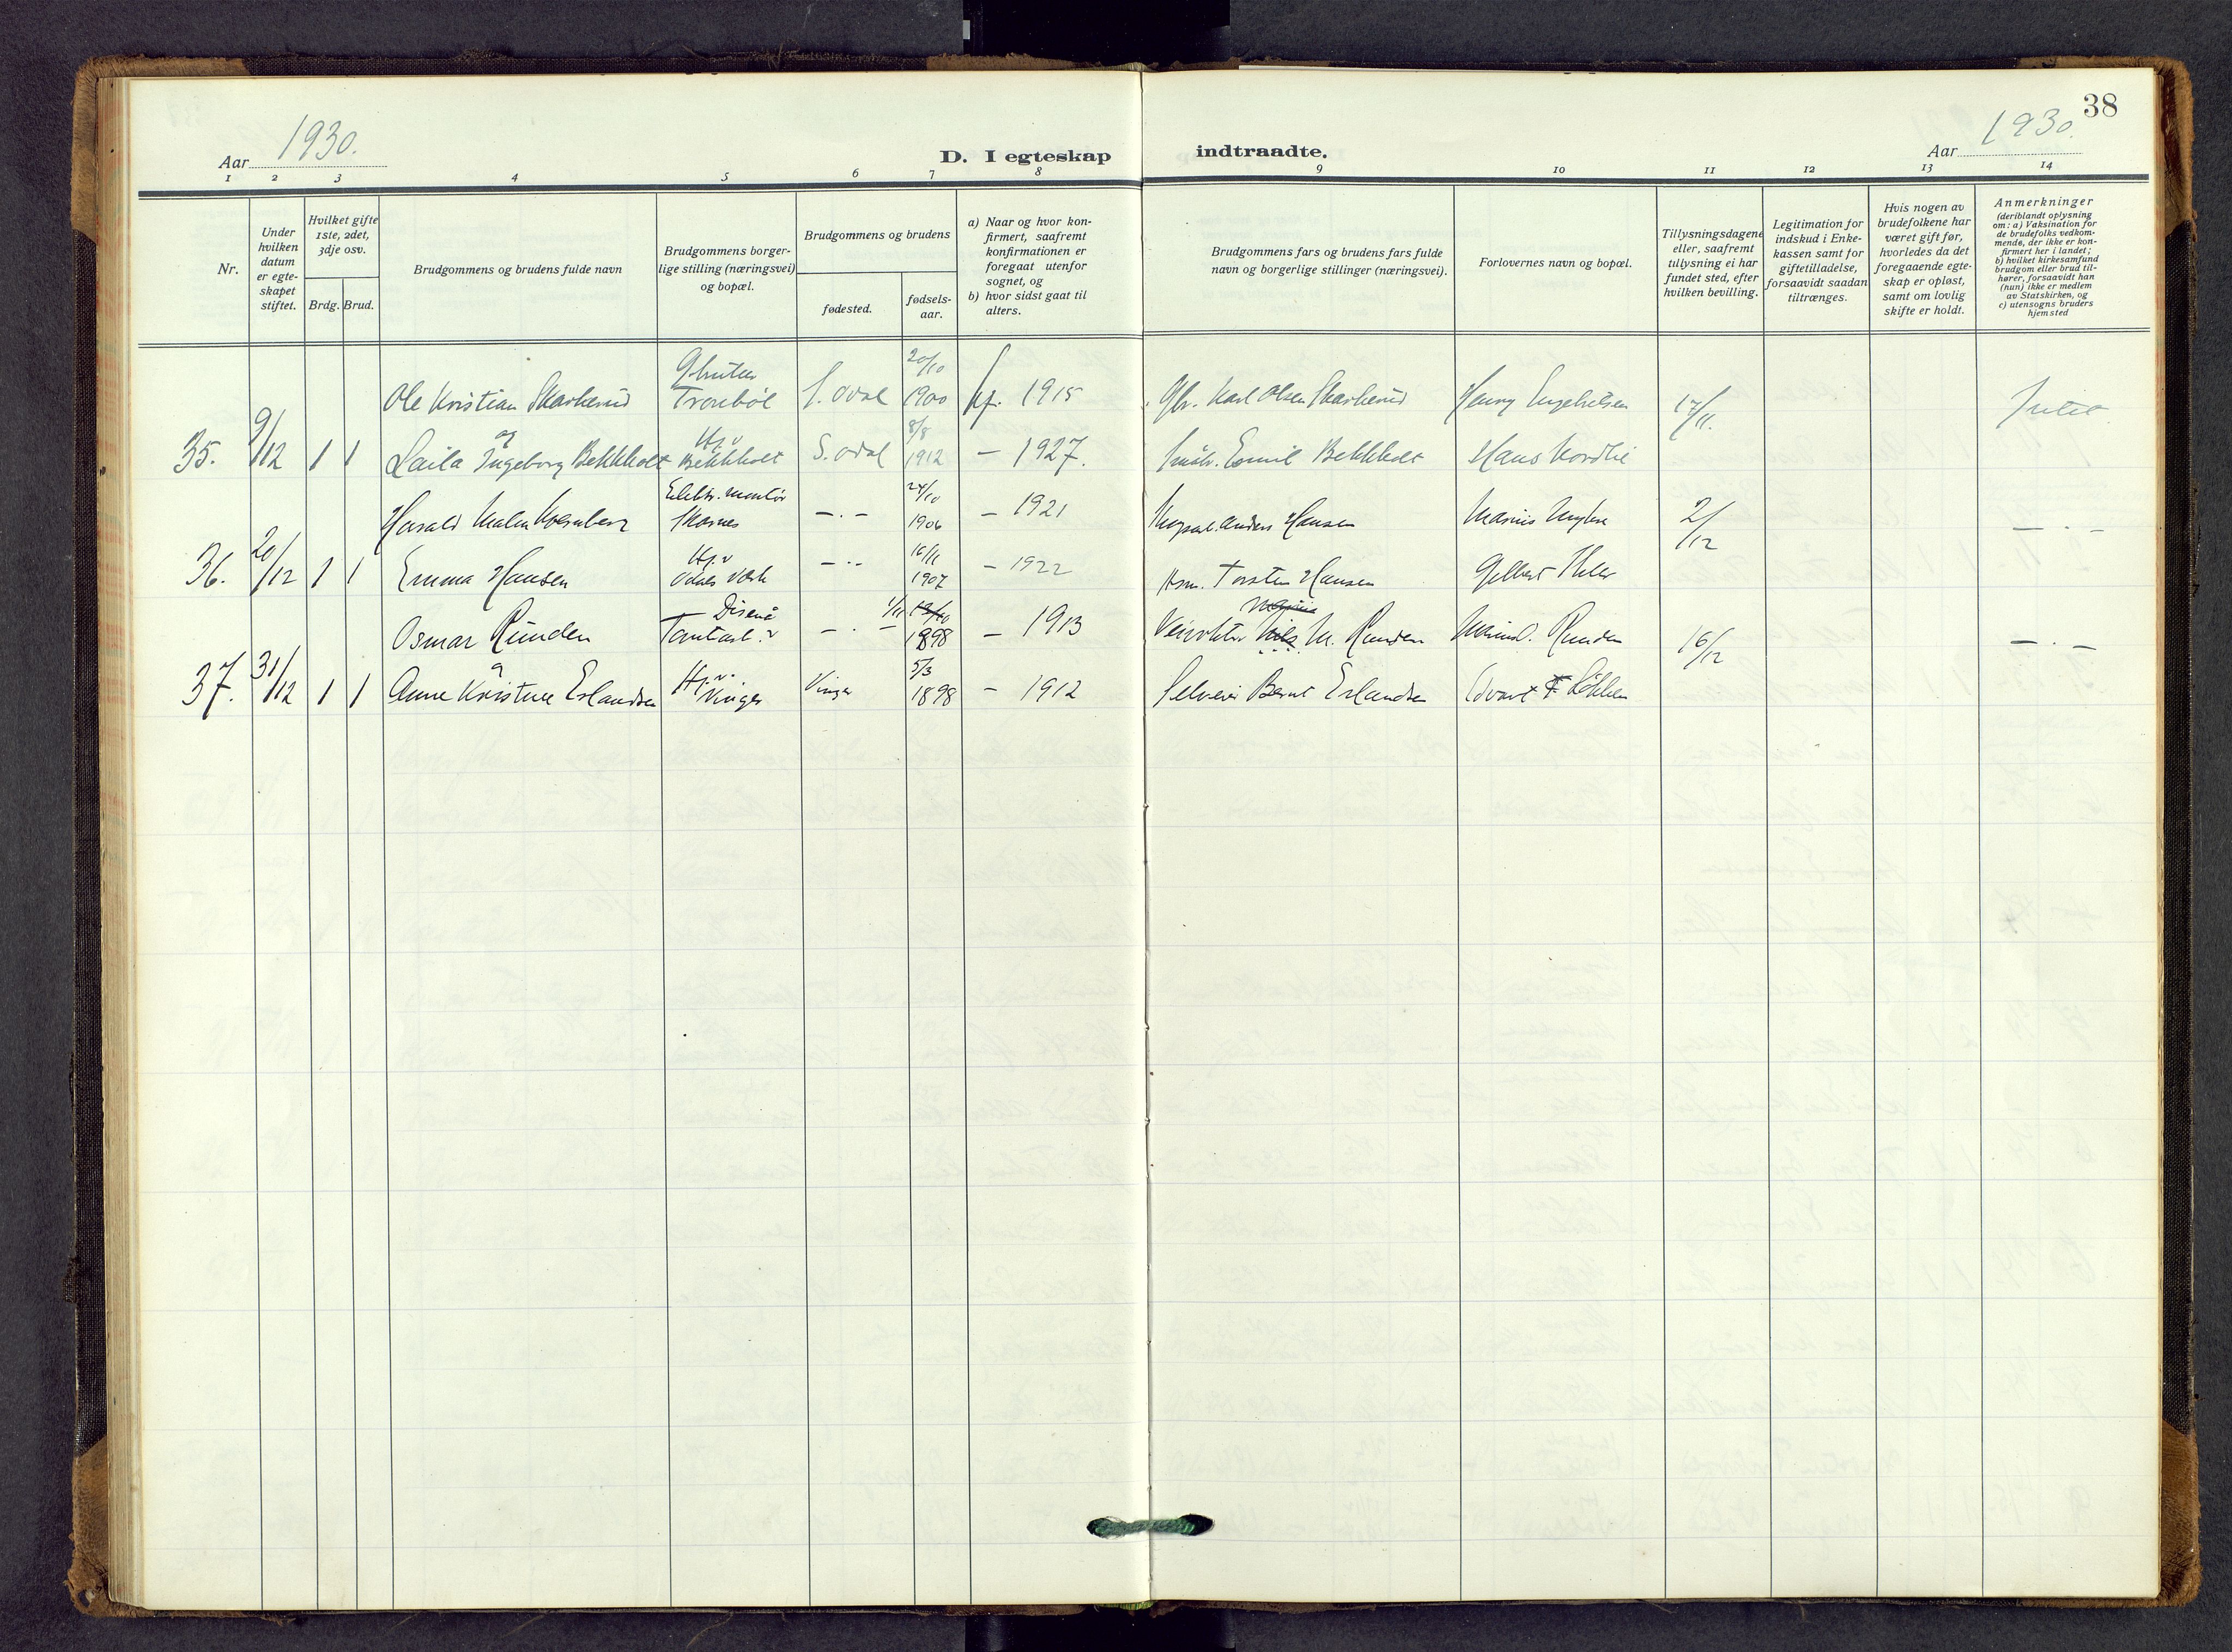 38
Aar 1930.
D. I egteskap indtraadte.
Aar 1930.
1 2 3 4 5 6 7 8 9 10 11 12 13 14
Nr.
Under
hvilken
datum
er egte-
skapet
stiftet.
Hvilket gifte
1ste, 2det,
3dje osv.
Brdg. Brud.
Brudgommens og brudens fulde navn
Brudgommens borger-
lige stilling (næringsvei)
og bopæl.
Brudgommens og brudens
fødested.
fødsels-
aar.
a) Naar og hvor kon-
firmert, saafremt
konfirmationen er
foregaat utenfor
sognet, og
b) hvor sidst gaat til
alters.
Brudgommens fars og brudens fars fulde
navn og borgerlige stillinger (næringsvei).
Forlovernes navn og bopæl.
Tillysningsdagene
eller, saafremt
tillysning ei har
fundet sted, efter
hvilken bevilling.
Legitimation for
indskud i Enke-
kassen samt for
giftetilladelse,
forsaavidt saadan
tiltrænges.
Hvis nogen av
brudefolkene har
været gift før,
hvorledes da det
foregaaende egte-
skap er opløst,
samt om lovlig
skifte er holdt.
Anmerkninger
(deriblandt oplysning
om: a) Vaksination for
de brudefolks vedkom-
mende, der ikke er kon-
firmert her i landet;
b) hvilket kirkesamfund
brudgom eller brud til-
hører, forsaavidt han
(hun) ikke er medlem
av Statskirken, og
c) utensogns bruders
hjemsted
20/10
Ole Kristian Skarherud S. Odal 1900 kf. 1915 Gbr. Karl Olsen Skarherud Henry Engebretsen 17/11.
og Hj.v 8/8
35. 9/12 1 1 Laila Ingeborg Bekkholt Bekkholt S. Odal 1912 — 1927. Småbr. Emil Bekkholt Hans Nordli
Elektr. montør 24/10
Harald Malm Skarnes —.— 1906 — 1921 Anders Hansen Marius 2/12 —.—
Hj.v 16/11
36. 20/12 1 1 Emma Hansen Odals Værk —.— 1907 — 1922 Torsten Hansen
Disenå 1/11
Osmar Runden —.— 1898 — 1913 Veivokter M. Runden Runden 16/12 —.—
Hj.v. 5/3
37. 31/12 1 1 Anne Kristine Erlandsen Vinger Vinger 1898 — 1912 Selveier Bernt Erlandsen Løkken